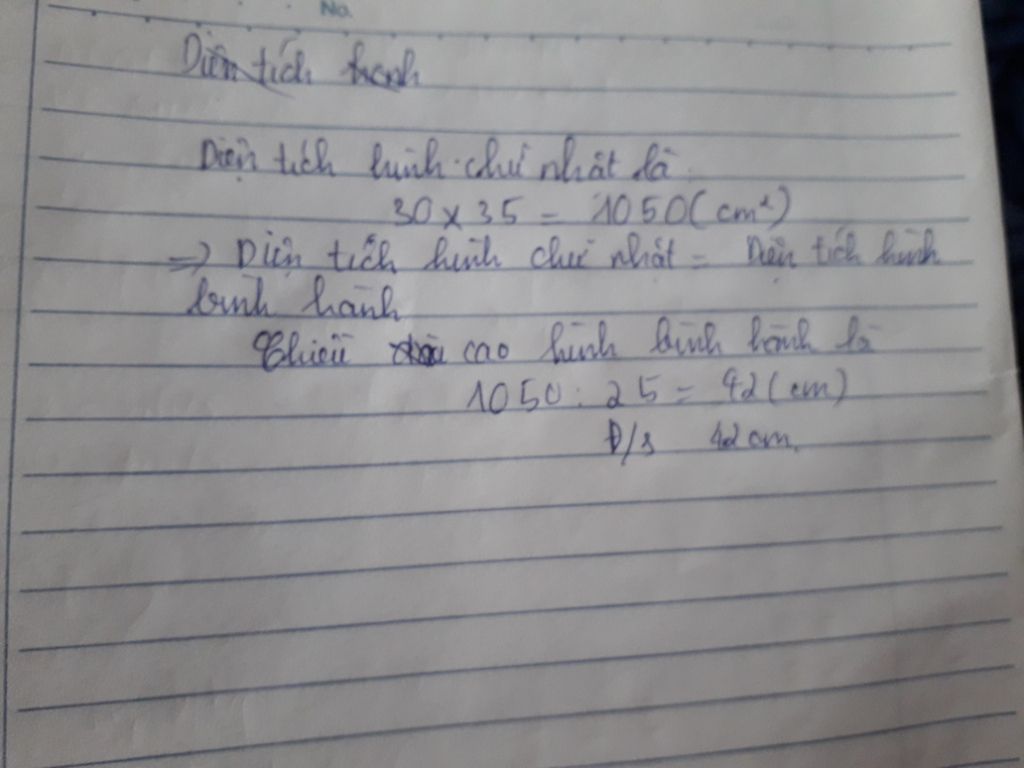 No.
Diện tích hành
Diện tích hình chữ nhật là
30 x 35 = 1050 (cm²)
=> Diện tích hình chữ nhật = Diện tích hình
bình hành
Chiều cao hình bình hành là
1050 : 25 = 42 (cm)
Đ/s 42 cm.